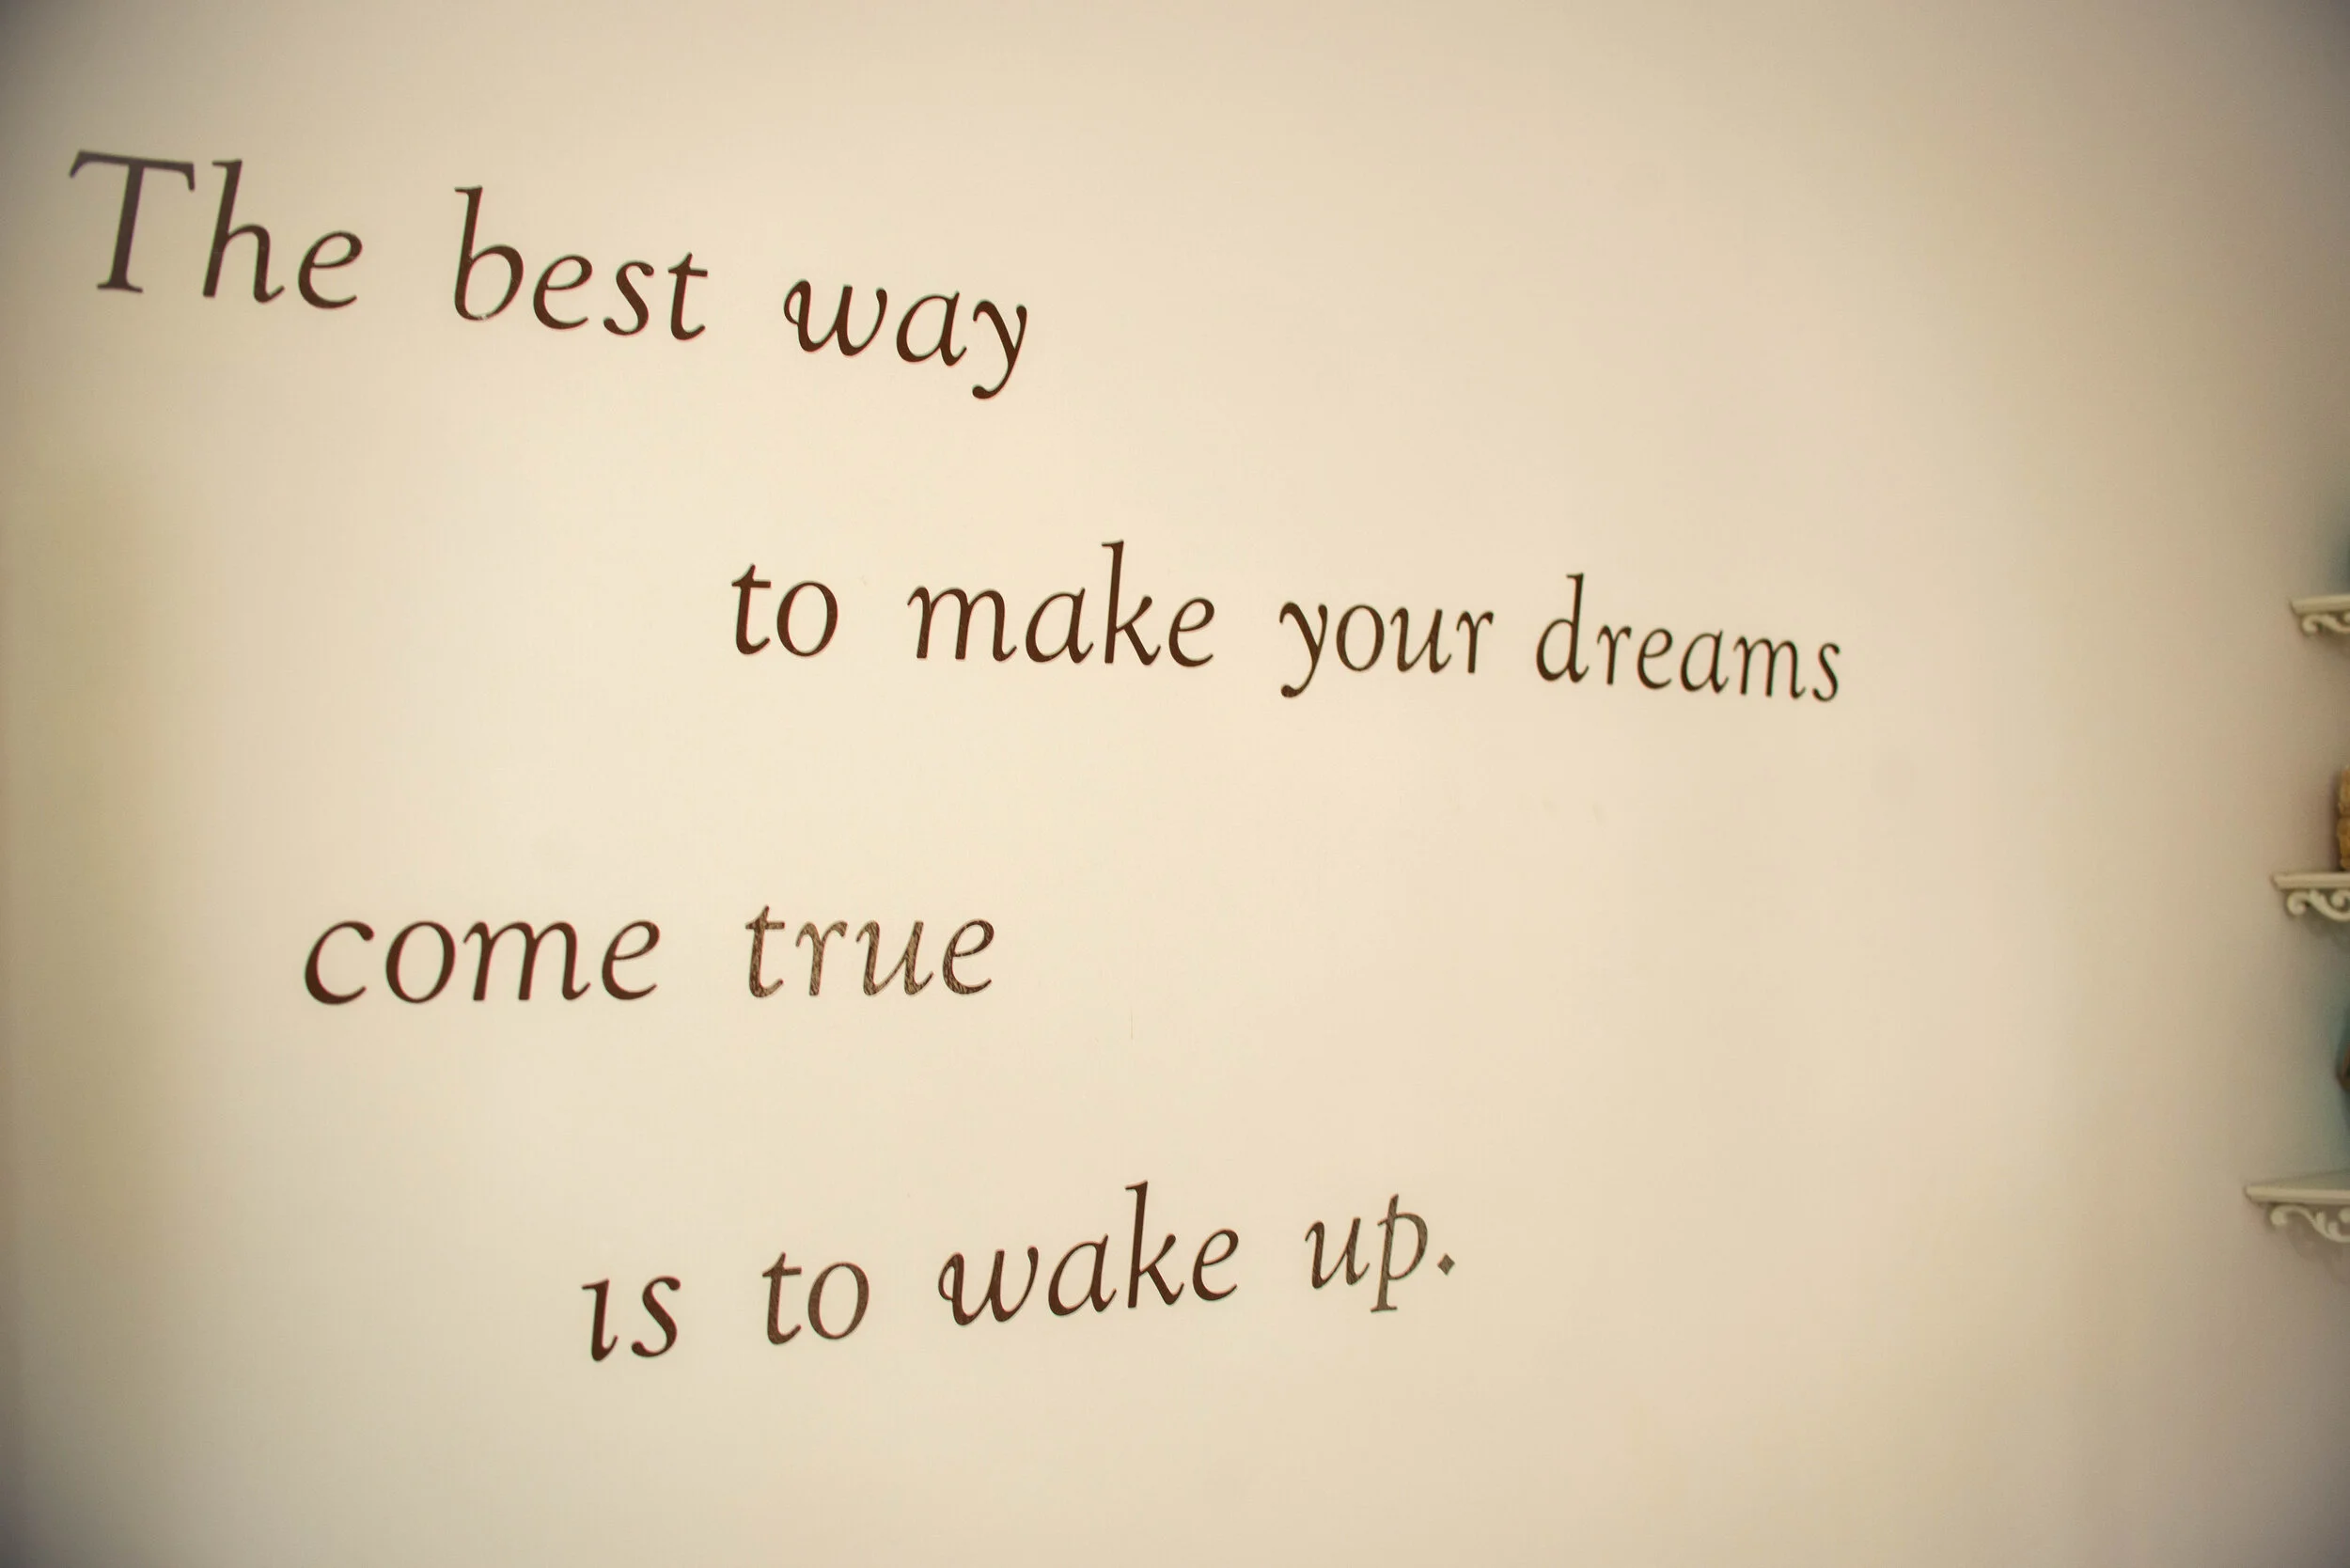 The best way
to make your dreams
come true
is to wake up.